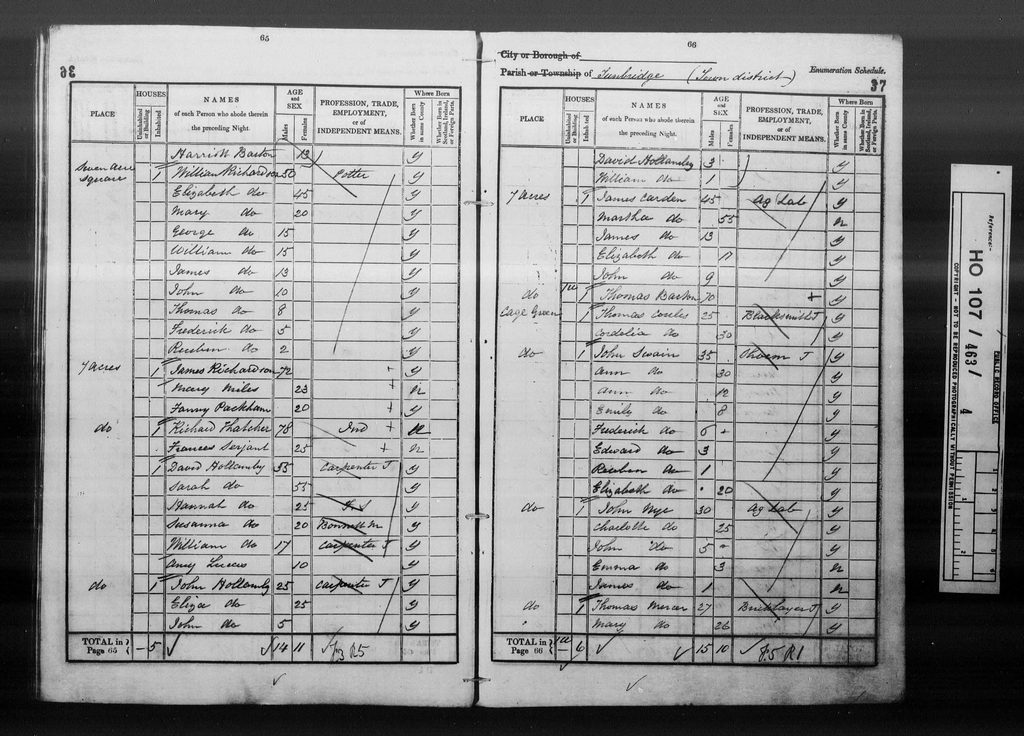 65
36
PLACE
HOUSES
Uninhabited or Building
Inhabited
NAMES
of each Person who abode therein
the preceding Night.
AGE and SEX
Males
Females
PROFESSION, TRADE,
EMPLOYMENT,
or of
INDEPENDENT MEANS.
Where Born
Whether Born in same County
Whether Born in Scotland, Ireland, or Foreign Parts.
Harriett Barton 13 y
Seven Acre Square 1 William Richardson 50 Potter y
Elizabeth do 45 y
Mary do 20 y
George do 15 y
William do 15 y
James do 13 y
John do 10 y
Thomas do 8 y
Frederick do 5 y
Reuben do 2 y
7 acres 1 James Richardson 72 + y
Mary Miles 23 + n
Fanny Packham 20 + y
do 1 Richard Thatcher 78 Ind +
Frances Serjant 25 + n
1 David Hollamby 55 Carpenter J y
Sarah do 55 y
Hannah do 25 y
Susanna do 20 Bonnett M y
William do 17 Carpenter J y
Amy Lucas 10 y
do 1 John Hollamby 25 Carpenter J y
Eliza do 25 y
John do 5 y
TOTAL in Page 65 – 5 14 11
66
City or Borough of
Parish or Township of Tunbridge (Town district) Enumeration Schedule.
37
PLACE
HOUSES
Uninhabited or Building
Inhabited
NAMES
of each Person who abode therein
the preceding Night.
AGE and SEX
Males
Females
PROFESSION, TRADE,
EMPLOYMENT,
or of
INDEPENDENT MEANS.
Where Born
Whether Born in same County
Whether Born in Scotland, Ireland, or Foreign Parts.
David Hollamby 3 y
William do 1 y
7 acres 1 James Carden 45 Ag Lab y
Martha do 55 n
James do 13 y
Elizabeth do 11 y
John do 9 y
do 1 Thomas Barton 70 + y
Cage Green 1 Thomas 25 Blacksmith J y
Cordelia do 30 y
do 1 John Swain 35 J y
Ann do 30 y
Ann do 12 y
Emily do 8 y
Frederick do 6 y
Edward do 3 y
Reuben do 1 y
Elizabeth do 20 y
do 1 John Nye 30 Ag Lab y
Charlotte do 25 y
John do 5 y
Emma do 3 n
James do 1 n
do 1 Thomas Mercer 27 Bricklayer J y
Mary do 26 y
TOTAL in Page 66 6 15 10
Reference:-
HO 107/463/4
PUBLIC RECORD OFFICE
COPYRIGHT - NOT TO BE REPRODUCED PHOTOGRAPHICALLY WITHOUT PERMISSION